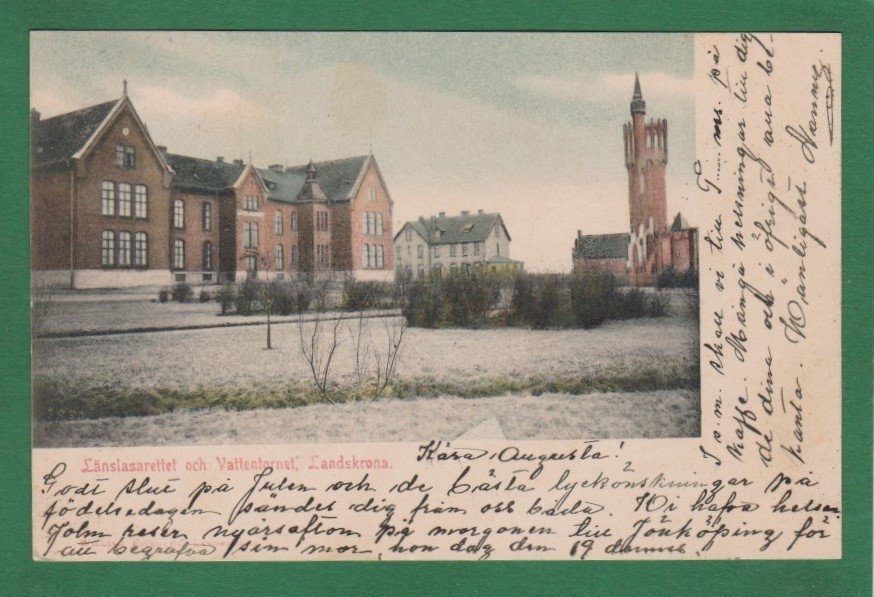 Länslasarettet och Vattentornet, Landskrona.
Kära Augusta!
Godt slut på Julen och de bästa lyckönskningar på
födelsedagen sändes dig från oss båda. Vi hafva helsan
Holm reser nyårsafton på morgonen till Jönköping för
att begrafva sin mor, hon dog den 19 dennes.
I v.m. skall vi till på
kaffe. Många helsningar till dig
de dina och i öfrigt ana be-
kanta. Vänligast Hanna